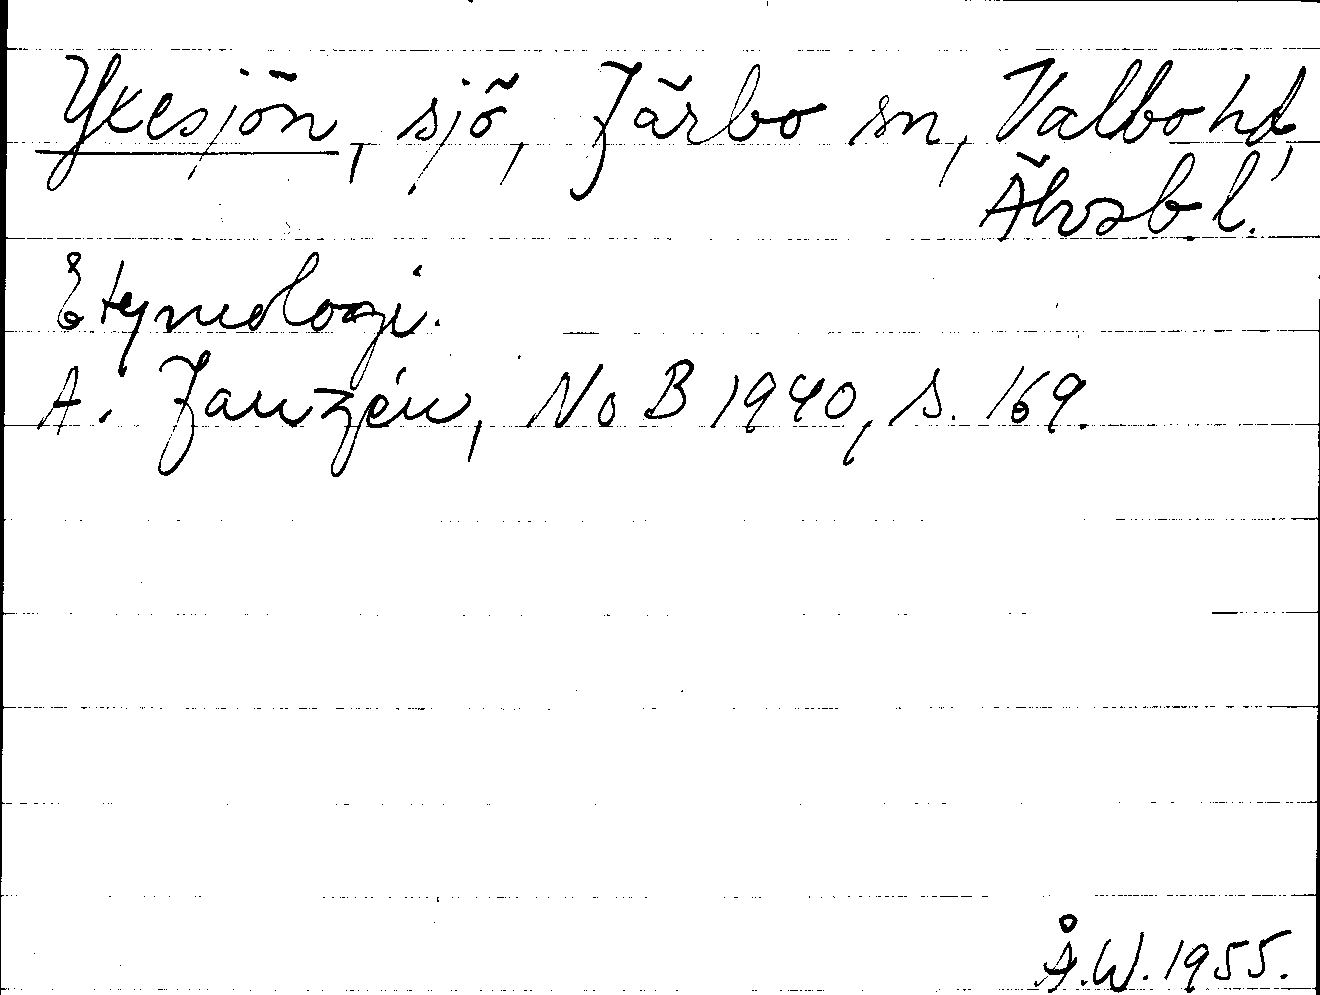 Ykesjön, sjö, Järbo sn, Valbo hd,
Älvsb. l.
Etymologi.
A. Janzén, NoB 1940, s. 169.
Å.W. 1955.